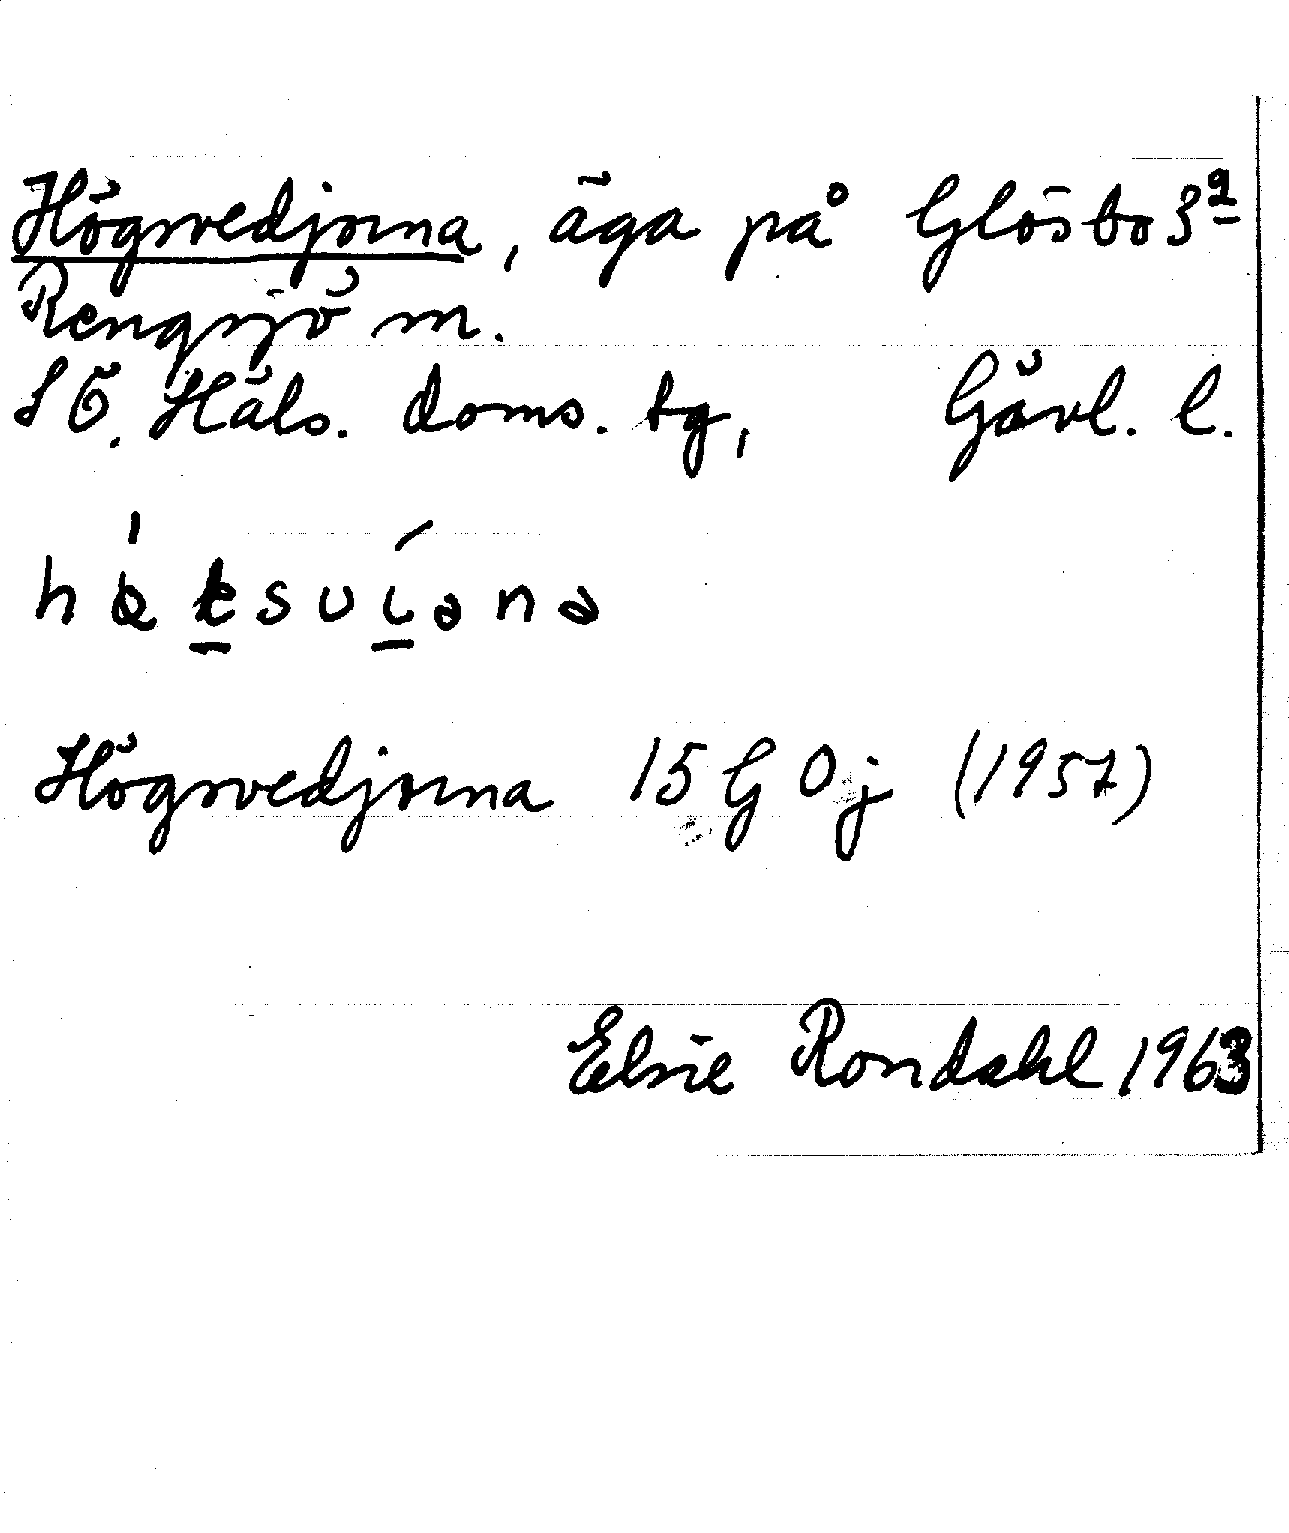 Högsvedjorna, äga på Glösbo 3ª
Rengsjö sn.
SÖ. Häls. doms. tg, Gävl. l.
Högsvedjorna 15 G 0j (1957)
Elsie Rondahl 1963